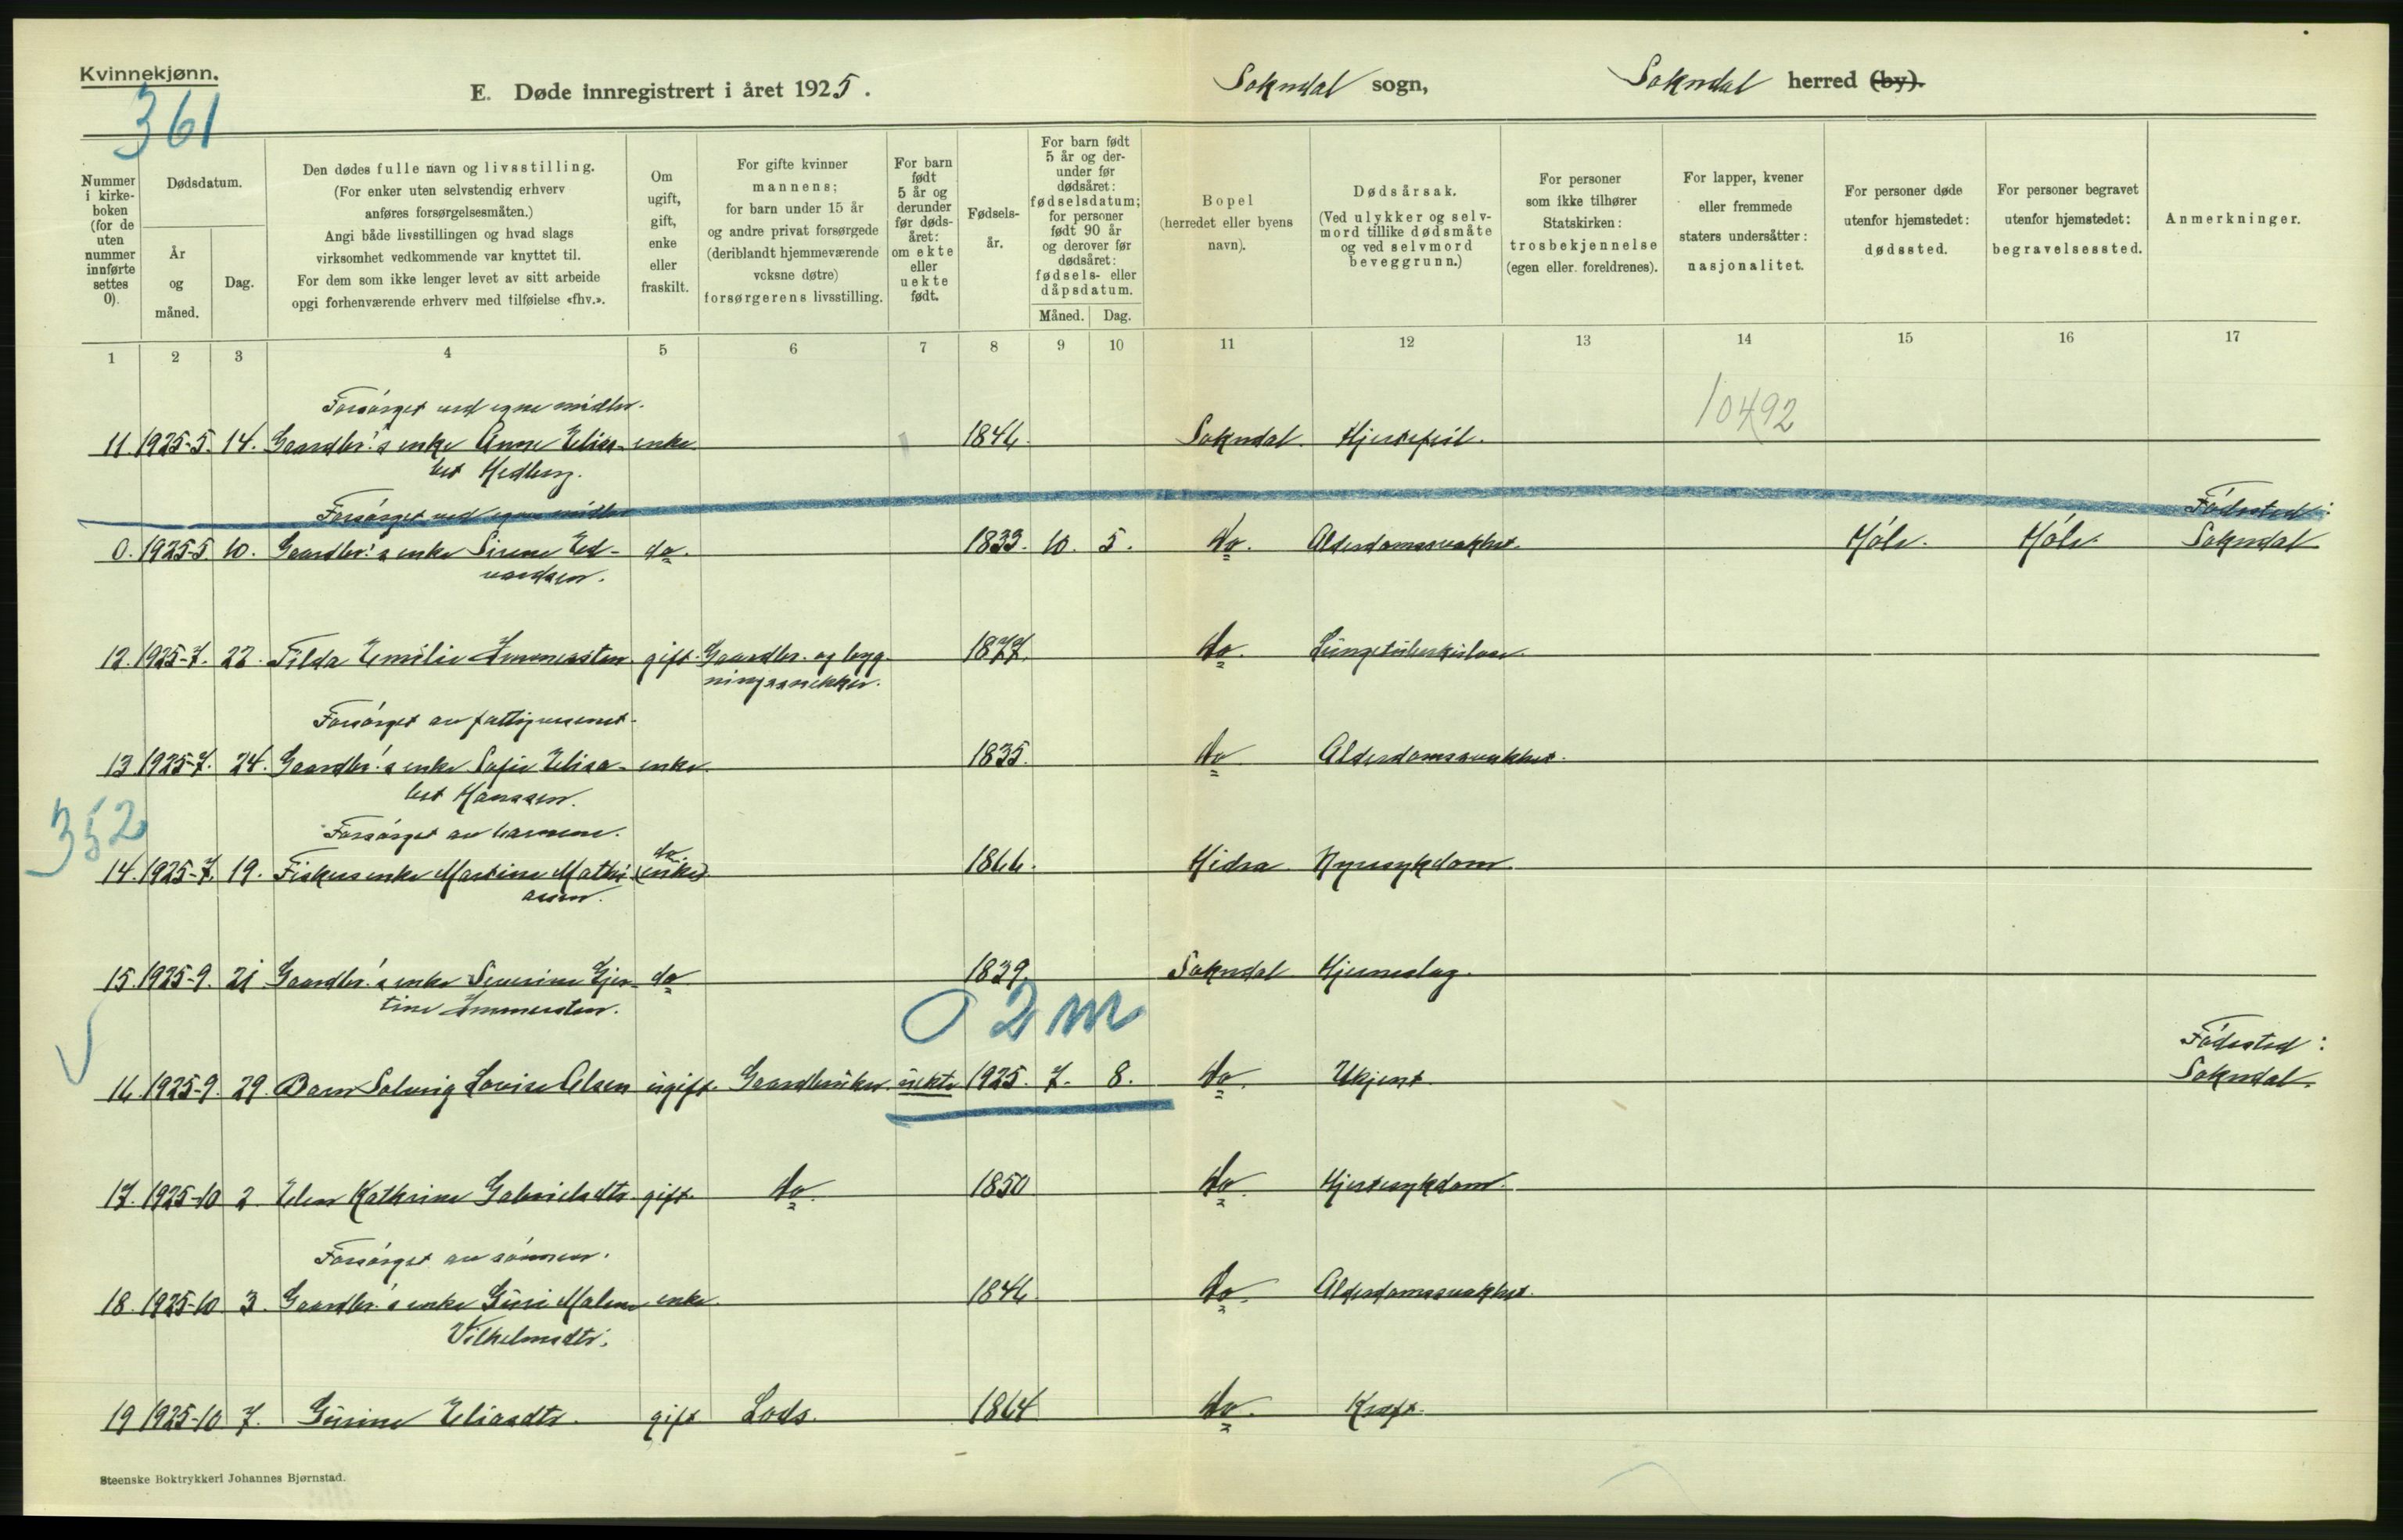 Kvinnekjønn.
361
E. Døde innregistrert i året 1925.
Sokndal sogn,
Sokndal herred (by).
Nummer i kirkeboken (for de uten nummer innførte settes 0).
Dødsdatum.
År og måned.
Dag.
Den dødes fulle navn og livsstilling.
(For enker uten selvstendig erhverv
anføres forsørgelsesmåten.)
Angi både livsstillingen og hvad slags
virksomhet vedkommende var knyttet til.
For dem som ikke lenger levet av sitt arbeide
opgi forhenværende erhverv med tilføielse «fhv.».
Om
ugift,
gift,
enke
eller
fraskilt.
For gifte kvinner
mannens;
for barn under 15 år
og andre privat forsørgede
(deriblandt hjemmeværende
voksne døtre)
forsørgerens livsstilling.
For barn
født
5 år og
derunder
før døds-
året:
om ekte
eller
uekte
født.
Fødsels-
år.
For barn født
5 år og der-
under før
dødsåret:
fødselsdatum;
for personer
født 90 år
og derover før
dødsåret:
fødsels- eller
dåpsdatum.
Måned. Dag.
Bopel
(herredet eller byens
navn).
Dødsårsak.
(Ved ulykker og selv-
mord tillike dødsmåte
og ved selvmord
beveggrunn.)
For personer
som ikke tilhører
Statskirken:
trosbekjennelse
(egen eller foreldrenes).
For lapper, kvener
eller fremmede
staters undersåtter:
nasjonalitet.
For personer døde
utenfor hjemstedet:
dødssted.
For personer begravet
utenfor hjemstedet:
begravelsessted.
Anmerkninger.
1 2 3 4 5 6 7 8 9 10 11 12 13 14 15 16 17
10492
Forsørget ved egne midler.
11. 1925-5. 14. Gaardbr.'s enke Anne Elisa- enke 1846. Sokndal. Hjertefeil.
bet Hedberg.
Forsørget ved egne midler Fødested:
0. 1925-5 10. Gaardbr.'s enke Sirene Ed- do. 1833. 10. 5. do. Alderdomssvakhet. Høle. Høle. Sokndal
vardsen.
12. 1925-7. 22. Tilda Emilie Immersten gift. Gaardbr. og byg- 1877. do. Lungetuberkulose.
ningssnekker.
Forsørget av fattigvesenet.
13 1925-7. 24. Gaardbr.'s enke Sofie Elisa- enke. 1835. do Alderdomssvakhet.
bet Hanssen.
352
Forsørget av barnene.
do
14. 1925-7. 19. Fiskers enke Martine Mathi- (enke) 1866. Hidra Nyresykdom
assen.
15. 1925-9. 21 Gaardbr.'s enke Severine Gjer- do 1839. Sokndal Hjerneslag.
tine Immersten.
0 2 m
Fødested:
16. 1925-9. 29. Barn Solveig Lovise Olsen ugift. Gaardbruker uekte 1925. 7. 8. do. Ukjent. Sokndal.
17. 1925-10 2. Elen Kathrine Gabrielsdtr. gift. do. 1850 do. Hjertesykdom.
Forsørget av sønnen.
18. 1925-10 3. Gaardbr.'s enke Guri Malene enke. 1846. do. Alderdomssvakhet.
Vilhelmsdtr.
19 1925-10 7. Gurine Eliasdtr. gift Lods. 1864 do. Kreft.
Steenske Boktrykkeri Johannes Bjørnstad.